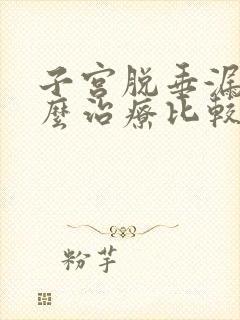 子宫脱垂漏
麼治療比較
粉芋